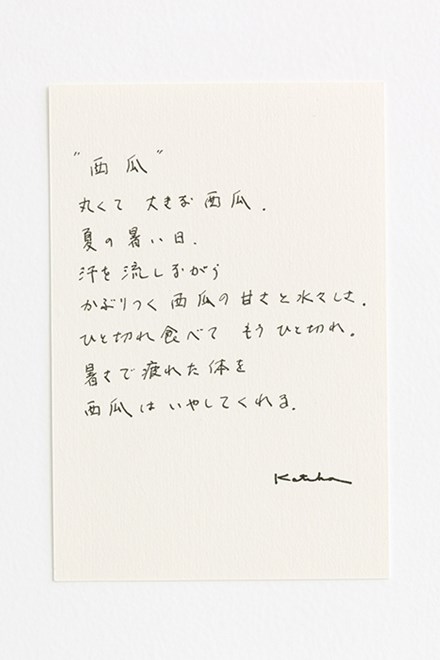 "西瓜"
丸くて 大きな 西瓜.
夏の 暑い 日.
汗を 流しながら
かぶりつく 西瓜の 甘さと 水々しさ.
ひと切れ 食べて もう ひと切れ.
暑さで 疲れた 体を
西瓜は いやしてくれる.